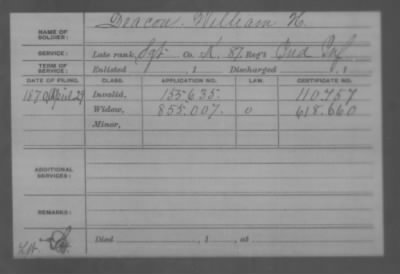 NAME OF SOLDIER: Deacon, William H.
SERVICE: Late rank, Sgt Co. K, 87 Reg't Ind Inf
TERM OF SERVICE: Enlisted , 1 Discharged , 1
DATE OF FILING. CLASS. APPLICATION NO. LAW. CERTIFICATE NO.
187 April 29 Invalid, 155.635 110.757
Widow, 855.007. 0 618.660
Minor,
ADDITIONAL SERVICES:
REMARKS:
Died , 1 , at